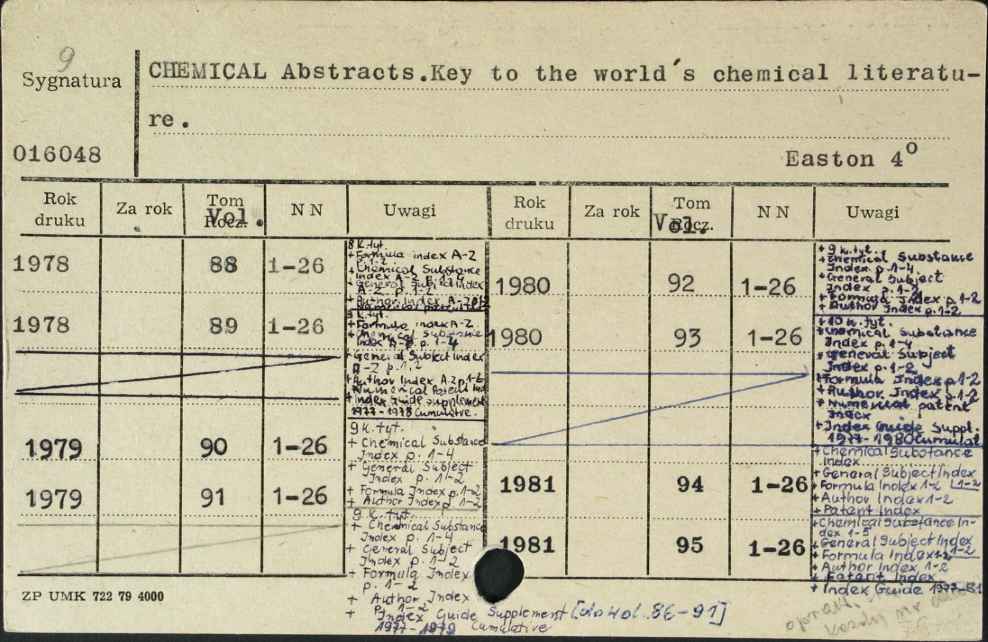 9
Sygnatura
CHEMICAL Abstracts.Key to the world´s chemical literatu-
re.
016048
Easton 4⁰
Rok druku Za rok Tom Rocz. Vol. NN Uwagi Rok druku Za rok Tom Rocz. Vol. NN Uwagi
1978 88 1-26
8 k.tyt.
+ Formula index A-Z
p. 1-2
+ Chemical Substance
Index A-Z p. 1-4
+ General Subject Index
A-Z p. 1-2
+ Author Index A-Z p 1-2
1978 89 1-26
+ Formula index A-Z
+ Chemical Substance
Index A-Z p. 1-4
+ General Subject Index
A-Z p. 1,2
+ Author Index A-Z p 1-2
+ Index Guide Supplement
1977-1978 Cumulative.
1979 90 1-26
9 k.tyt.
+ Chemical Substance
Index p. 1-4
+ General Subject
Index p. 1-2
+ Formula Index p. 1-2
+ Author Index p 1-2
1979 91 1-26
9 k. tyt.
+ Chemical Substance
Index p. 1-4
+ General Subject
Index p. 1-2
+ Formula Index
p. 1-2
+ Author Index
p. 1-2
+ Index Guide Supplement [do vol. 86-91]
1977-1979 Cumulative
1980 92 1-26
+ 9 k.tyt.
+ Chemical Substance
Index p. 1-4
+ General Subject
Index p. 1-2
+ Formula Index p 1-2
+ Author Index p. 1-2
1980 93 1-26
+ 10 k. tyt.
+ Chemical Substance
Index p. 1-4
+ General Subject
Index p. 1-2
+ Formula Index p 1-2
+ Author Index p. 1-2
+ Numerical patent
Index
+ Index Guide Suppl.
1977-1980 Cumulat
1981 94 1-26
+ Chemical Substance
Index
+ General Subject Index
1-2
+ Formula Index 1-2
+ Author Index 1-2
+ Patent Index
1981 95 1-26
+ Chemical Substance In-
dex 1-5
+ General Subject Index
1-2
+ Formula Index 1-2
+ Author Index 1-2
+ Patent Index
+ Index Guide 1977-81
ZP UMK 722 79 4000